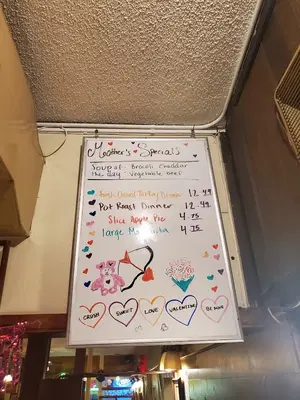 Mother's Specials
Soup of Brocoli Cheddar
the day Vegetable beef
Turkey Dinner 12.49
Pot Roast Dinner 12.49
Slice Apple Pie 4.75
large Margarita 4.75
CRUSH SWEET LOVE VALENTINE BE MINE